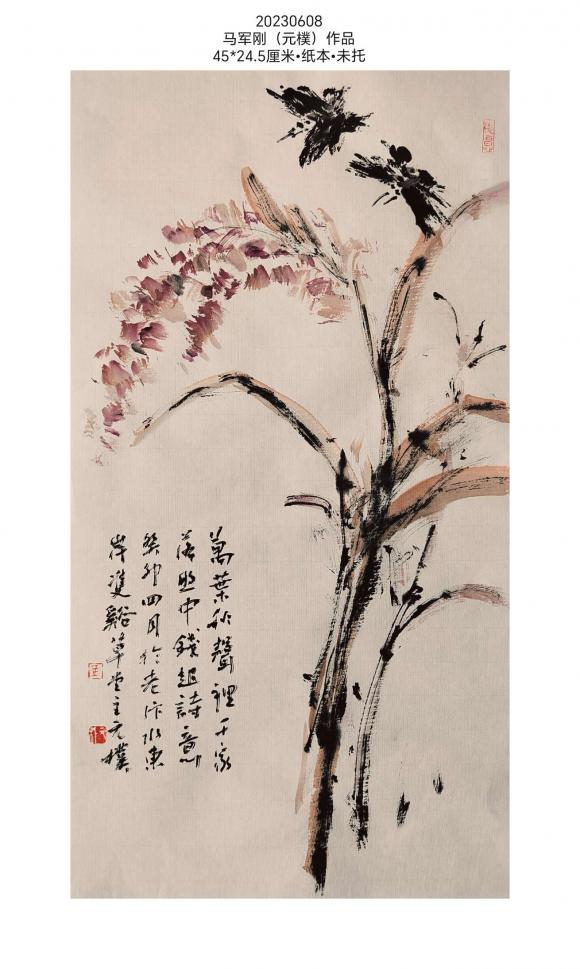 20230608
马军刚（元樸）作品
45*24.5厘米•纸本•未托
萬葉秋聲裡千家
落照中錢起詩意
癸卯四月於老汴水東
岸雙谿草堂主元樸